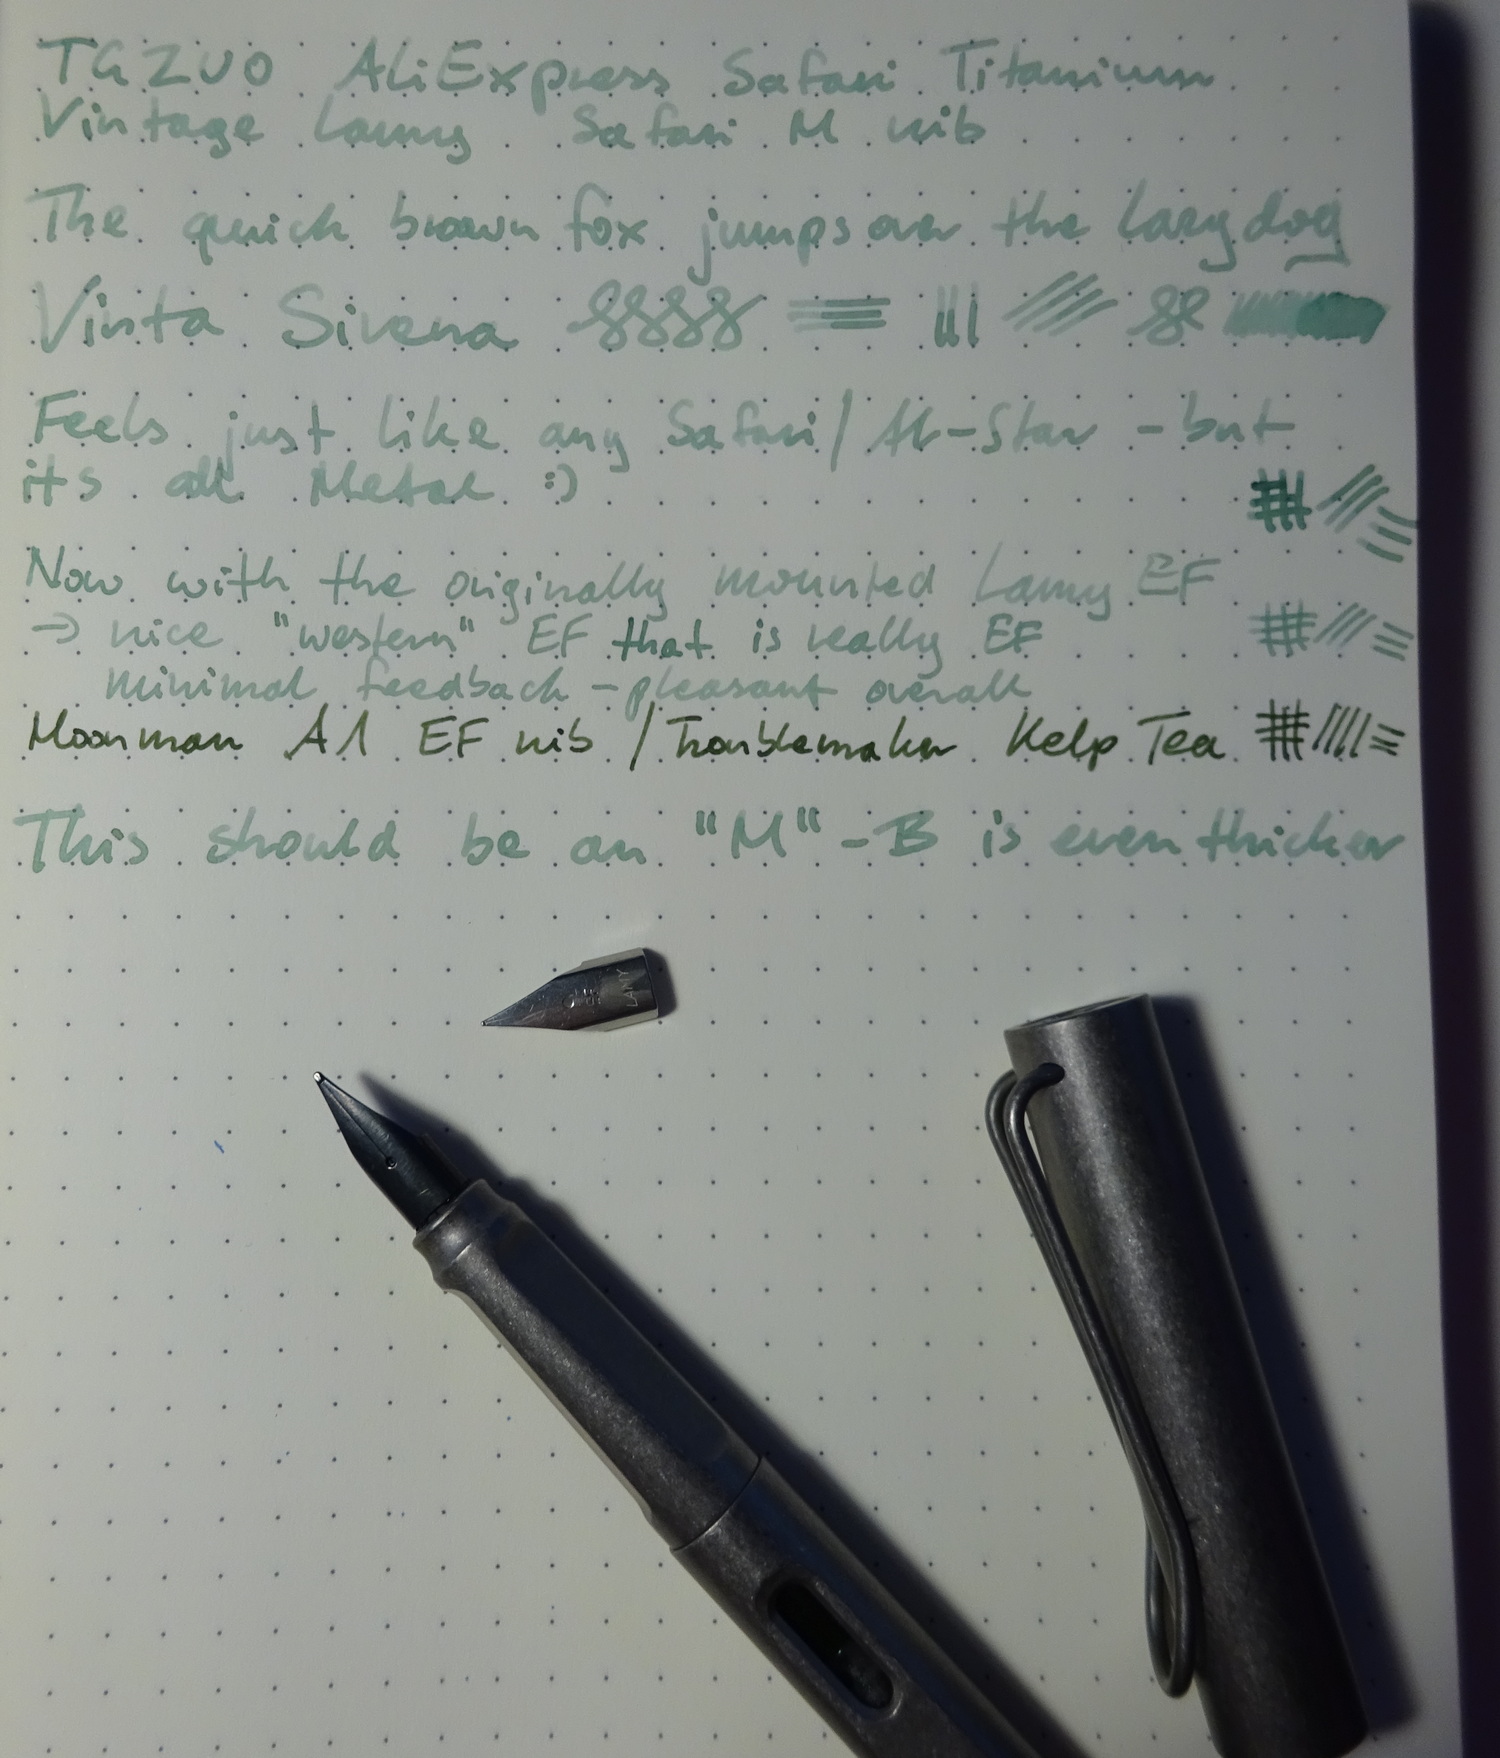 TGZUO AliExpress Safari Titanium
Vintage Lamy Safari M nib
The quick brown fox jumps over the lazy dog
Vinta Sirena
Feels just like any Safari / Al-Star - but
its all Metal :)
Now with the originally mounted Lamy EF
→ nice "western" EF that is really EF
minimal feedback - pleasant overall
Moonman A1 EF nib / Troublemaker Kelp Tea
This should be an "M" - B is even thicker
EF
LAMY